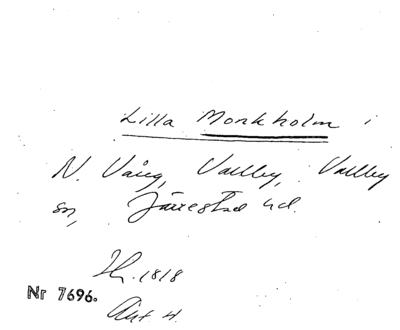 Lilla Monkholm i
N. Vång, Vallby, Vallby
sn, Järrestad hd.
Th. 1818
Nr 7696.
Akt 4.